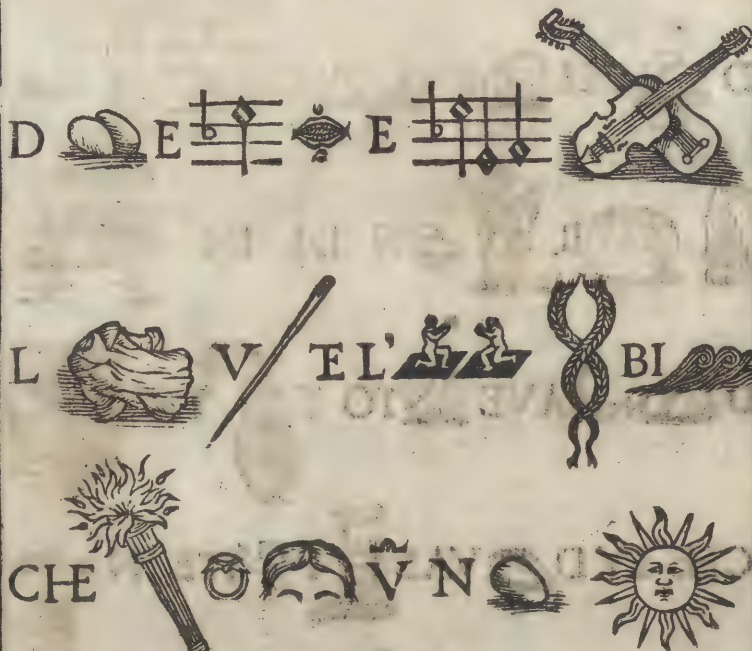 D E E
L V E L' BI
CHE Ṽ N